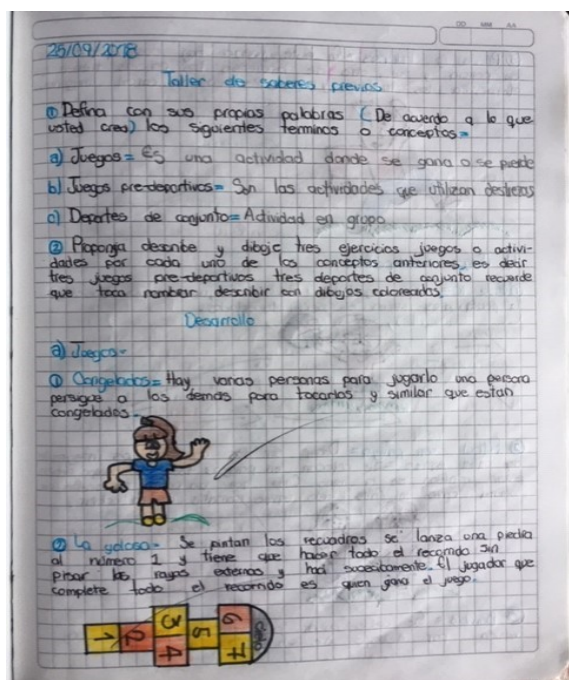 DD MM AA
25/09/2018
Taller de saberes previos
① Defina con sus propias palabras (De acuerdo a lo que
usted crea) los siguientes terminos o conceptos=
a) Juegos= Es una actividad donde se gana o se pierde
b) Juegos pre-deportivos= Son las actividades que utilizan destrezas
c) Deportes de conjunto= Actividad en grupo
② Proponga describe y dibuje tres ejercicios juegos o activi-
dades por cada uno de los conceptos anteriores, es decir
tres juegos pre-deportivos tres deportes de conjunto recuerde
que toca nombrar describir con dibujos coloreados.
Desarrollo
a) Juegos-
① Congelados= Hay varias personas para jugarlo una persona
persigue a los demas para tocarlos y similar que estan
congelados.
② La golosa- Se pintan los recuadros se lanza una piedra
al número 1 y tiene que hacer todo el recorrido sin
pisar las rayas externas y haci sucecibamente. El jugador que
complete todo el recorrido es quien gana el juego.
1 2 3 4 5 6 7